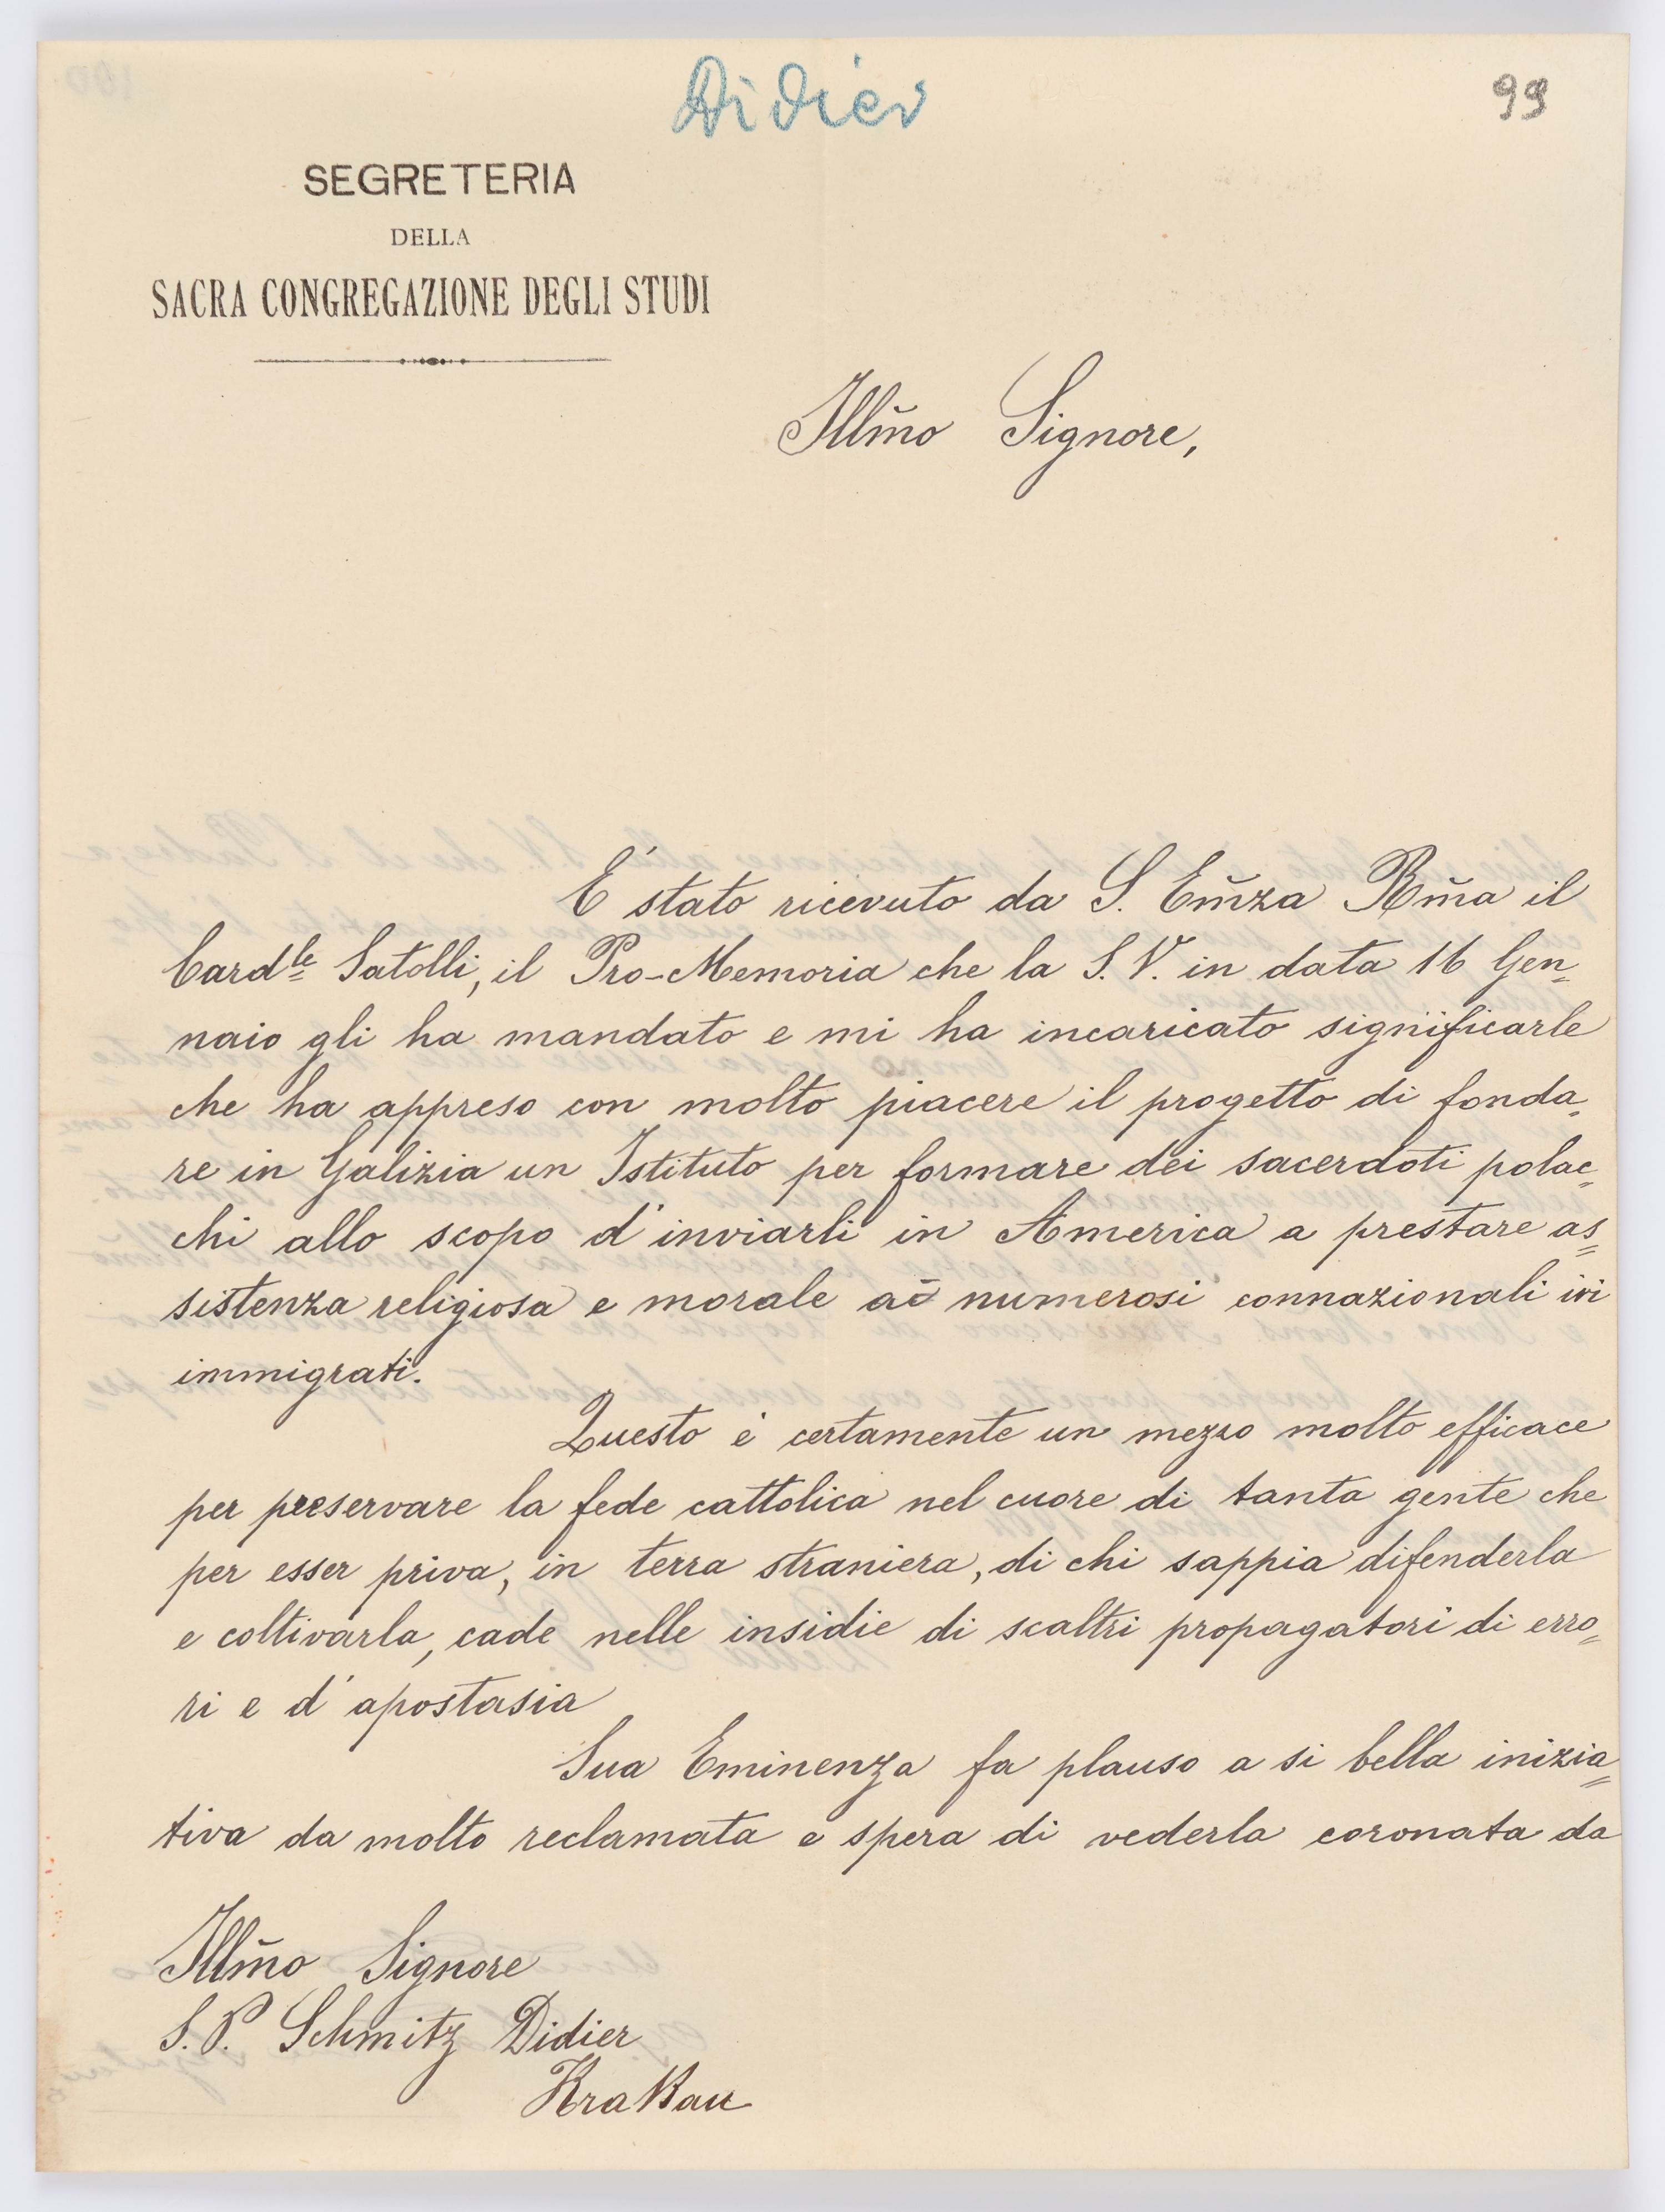 Didier
99
SEGRETERIA
DELLA
SACRA CONGREGAZIONE DEGLI STUDI
Illm̃o Signore,
E' stato ricevuto da S. Em̃za Rm̃a il
Card.le Satolli, il Pro-Memoria che la S. V. in data 16 Gen=
naio gli ha mandato e mi ha incaricato significarle
che ha appreso con molto piacere il progetto di fonda=
re in Galizia un Istituto per formare dei sacerdoti polac=
chi allo scopo d'inviarli in America a prestare as=
sistenza religiosa e morale ad numerosi connazionali ivi
immigrati.
Questo è certamente un mezzo molto efficace
per preservare la fede cattolica nel cuore di tanta gente che
per esser priva, in terra straniera, di chi sappia difenderla
e coltivarla, cade nelle insidie di scaltri propagatori di erro=
ri e d'apostasia
Sua Eminenza fa plauso a si bella inizia=
tiva da molto reclamata e spera di vederla coronata da
Illm̃o Signore
S. P. Schmitz Didier
Krakau